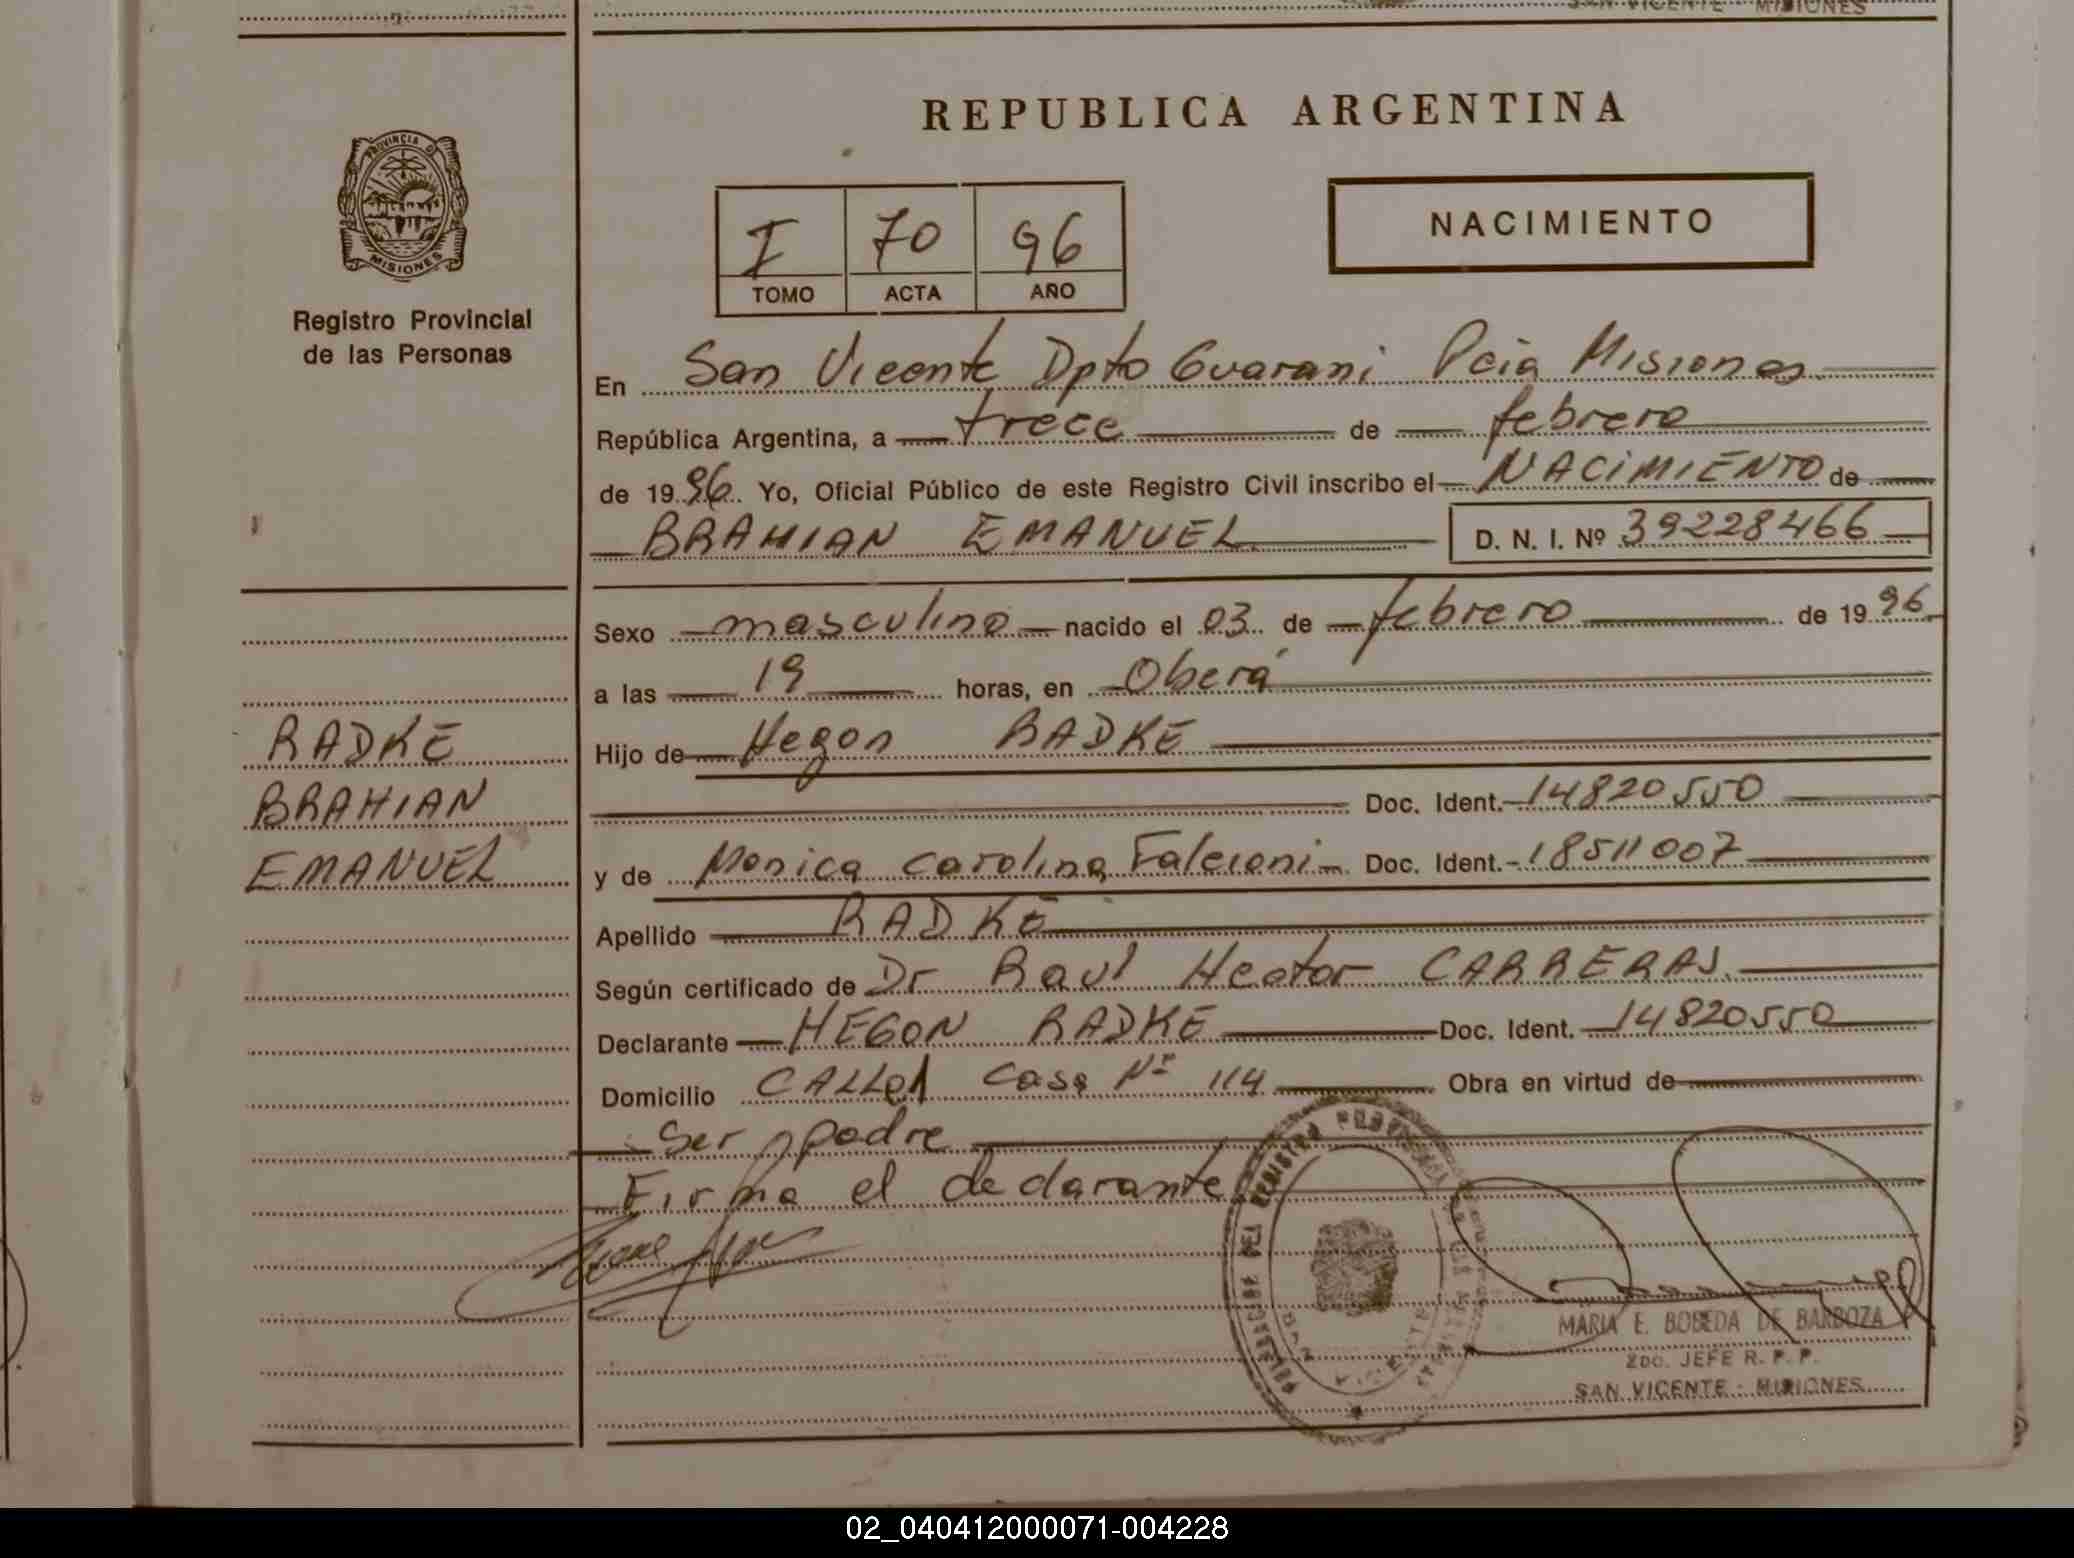 SAN VICENTE - MISIONES
REPUBLICA ARGENTINA
PROVINCIA D
MISIONES
Registro Provincial
de las Personas
I 70 96
TOMO ACTA AÑO
NACIMIENTO
En San Vicente Dpto Guarani Pcia Misiones
República Argentina, a trece de febrero
de 1996 Yo, Oficial Público de este Registro Civil inscribo el NACIMIENTO de
BRAHIAN EMANUEL D. N. I. Nº 39228466
Sexo masculino nacido el 03 de febrero de 1996
a las 19 horas, en Oberá
RADKE
BRAHIAN
EMANUEL
Hijo de Hegon RADKE
Doc. Ident. 14820550
y de Monica Carolina Falcioni Doc. Ident. 18511007
Apellido RADKE
Según certificado de Dr Raul Hector CARRERAS.
Declarante HEGON RADKE Doc. Ident. 14820550
Domicilio CALLE 1 Casa Nº 114 Obra en virtud de
Ser padre
Firma el declarante
DEL REGISTRO PROVINCIAL
MARIA E. BOBEDA DE BARBOZA
2DO. JEFE R. P. P.
SAN VICENTE - MISIONES
02_040412000071-004228